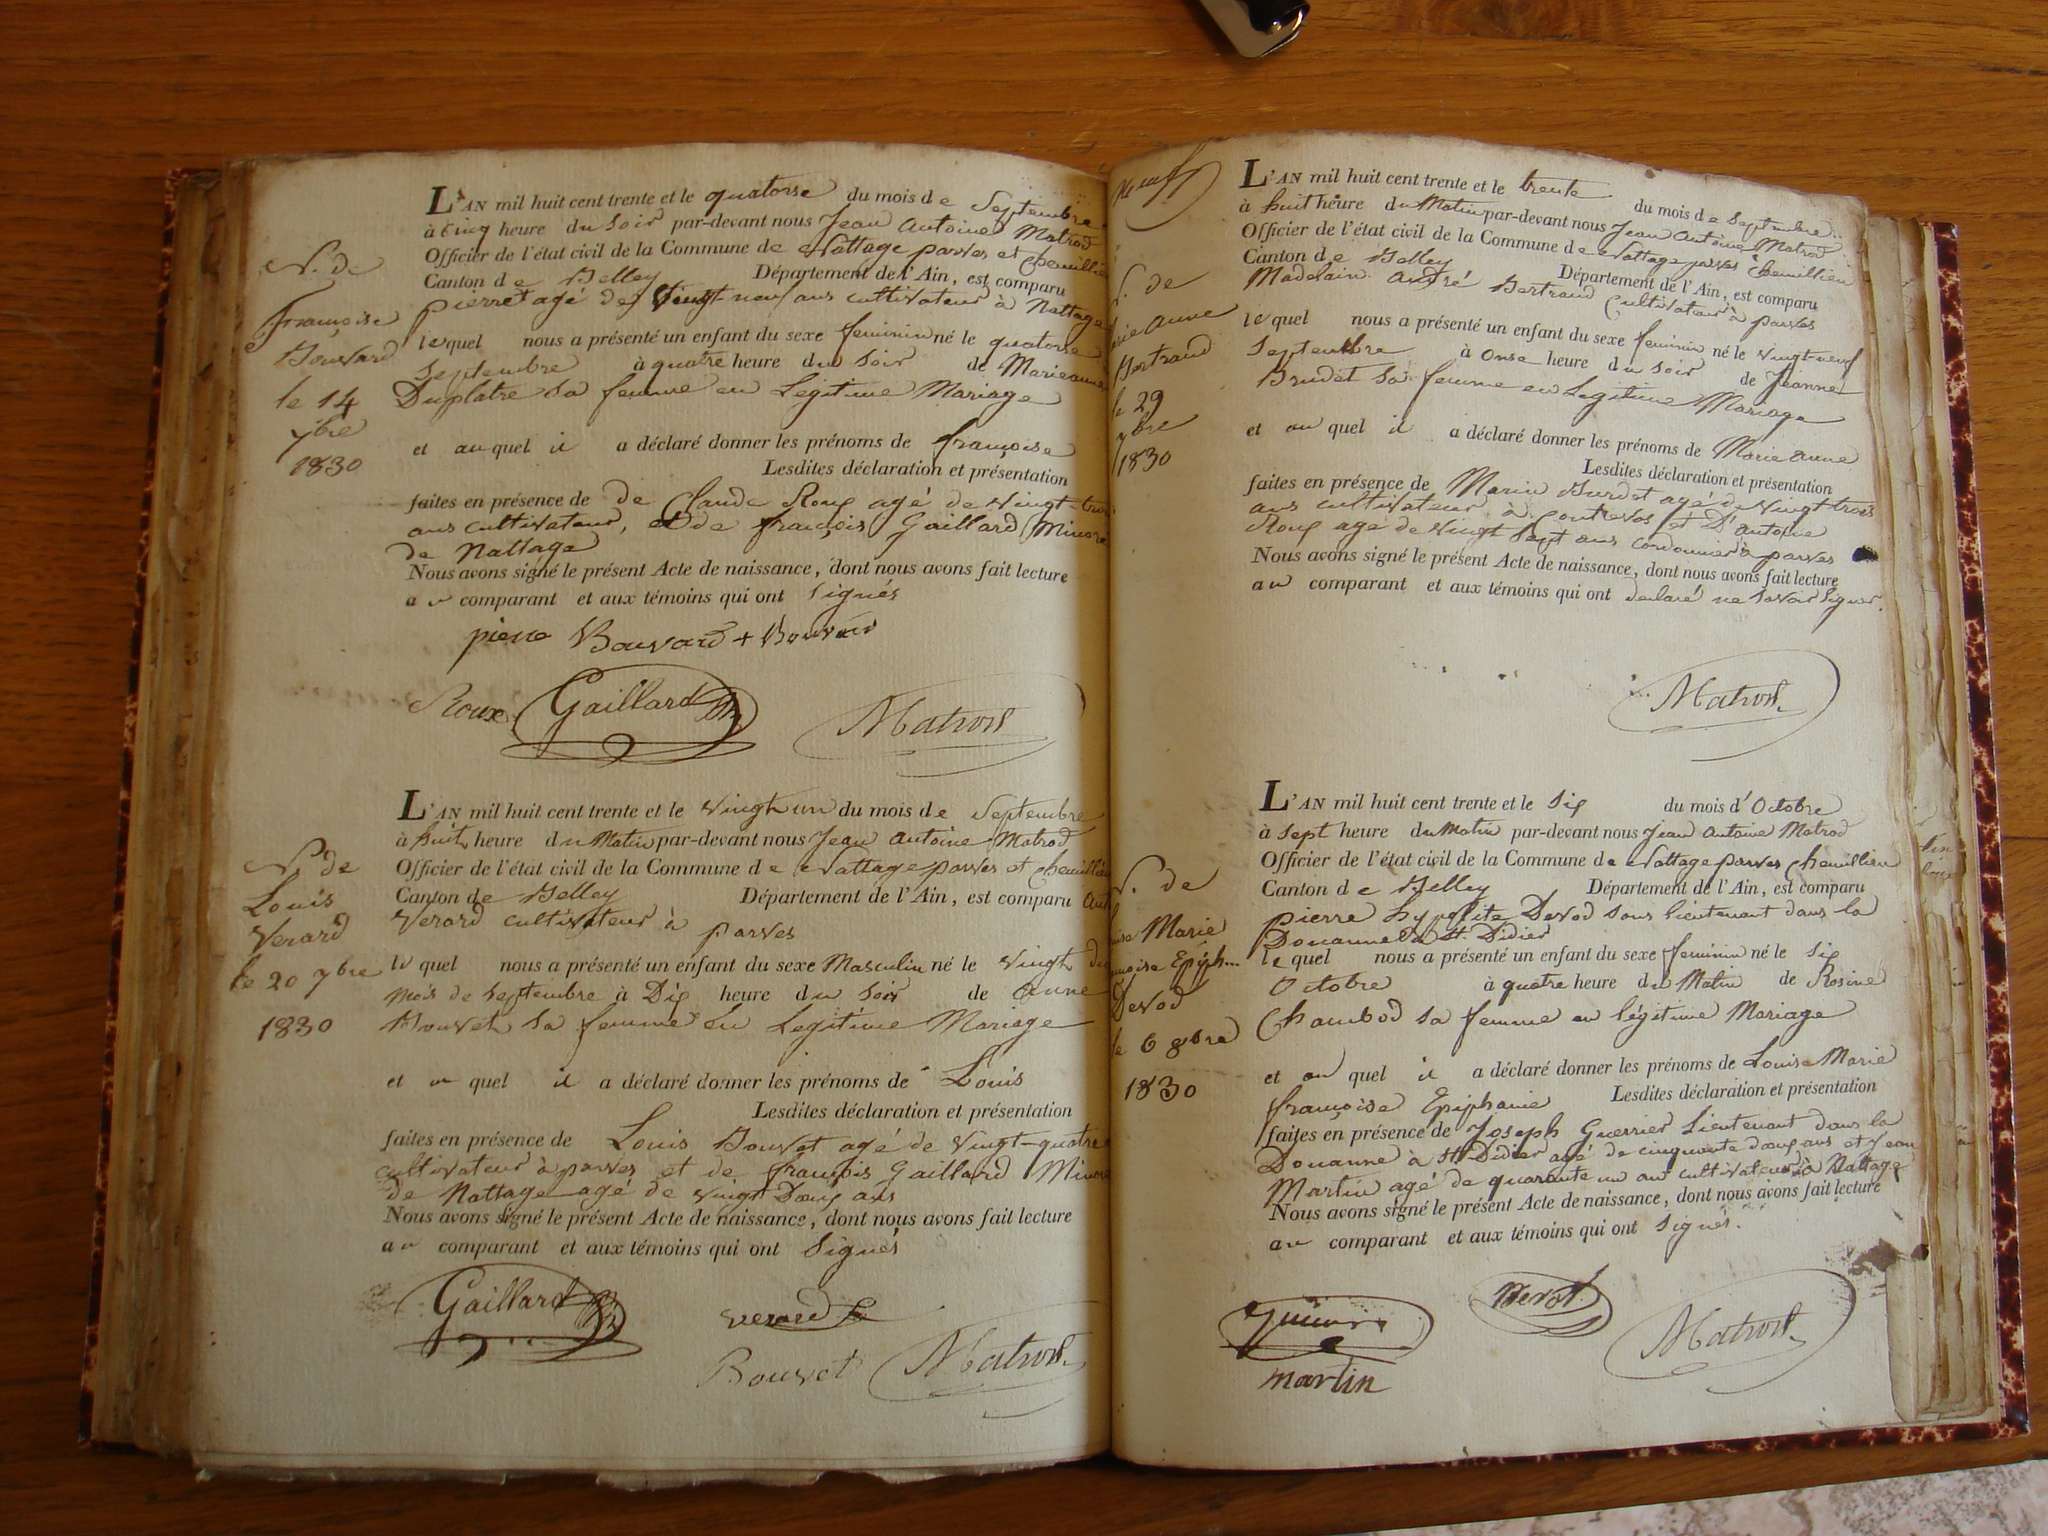 L'AN mil huit cent trente et le quatorse du mois de Septembre
à Cinq heure du Soir par-devant nous Jean Antoine Matrod
Officier de l'état civil de la Commune de Nattage parves et Chemillien
Canton de Belley Département de l'Ain, est comparu
pierre agé de Vingt-neuf ans cultivateur à Nattage
lequel nous a présenté un enfant du sexe feminin né le quatorse
Septembre à quatre heure du Soir de Marieanne
Duplatre sa femme en Légitime Mariage
et auquel il a déclaré donner les prénoms de françoise
Lesdites déclaration et présentation
faites en présence de de Claude Roux agé de Vingt-trois
ans cultivateur, et de françois Gaillard Minoré
de Nattage
Nous avons signé le présent Acte de naissance, dont nous avons fait lecture
au comparant et aux témoins qui ont Signés
pierre Bouvard + Bouvard
Roux Gaillard Matrod
N. de
françoise
Bouvard
le 14
7bre
1830
L'AN mil huit cent trente et le Vingt un du mois de Septembre
à huit heure du Matin par-devant nous Jean Antoine Matrod
Officier de l'état civil de la Commune de Nattage parves et Chemillien
Canton de Belley Département de l'Ain, est comparu
Verard cultivateur à parves
lequel nous a présenté un enfant du sexe Masculin né le Vingt du
mois de Septembre à Dix heure du Soir de Anne
Bouvet sa femme en Légitime Mariage
et au quel il a déclaré donner les prénoms de Louis
Lesdites déclaration et présentation
faites en présence de Louis Bouvet agé de Vingt-quatre
cultivateur à parves et de françois Gaillard Minoré
de Nattage agé de vingt Doux ans
Nous avons signé le présent Acte de naissance, dont nous avons fait lecture
au comparant et aux témoins qui ont Signés
Gaillard Verard
Bouvet Matrod
N. de
Louis
Verard
le 20 7bre
1830
neuf
L'AN mil huit cent trente et le trente du mois de Septembre
à huit heure du Matin par-devant nous Jean Antoine Matrod
Officier de l'état civil de la Commune de Nattage parves Chemillien
Canton de Belley Département de l'Ain, est comparu
Madelain André Bertrand Cultivateur à parves
lequel nous a présenté un enfant du sexe feminin né le Vingt-neuf
Septembre à onse heure du Soir de Jeanne
sa femme en Légitime Mariage
et au quel il a déclaré donner les prénoms de Marie anne
Lesdites déclaration et présentation
faites en présence de Marin Burdet agé de Vingt trois
ans cultivateur à Contrevos et D'antoine
Roux age de Vingt Sept ans cordonnier à parves
Nous avons signé le présent Acte de naissance, dont nous avons fait lecture
au comparant et aux témoins qui ont declaré ne Savoir Signer.
Matrod
N. de
rie anne
Bertrand
le 29
7bre
1830
L'AN mil huit cent trente et le Six du mois d'Octobre
à Sept heure du Matin par-devant nous Jean Antoine Matrod
Officier de l'état civil de la Commune de Nattage parves Chemillien
Canton de Belley Département de l'Ain, est comparu
pierre hypolite Devod Sous lieutenant dans la
Douanne à St. Didier
lequel nous a présenté un enfant du sexe feminin né le Six
Octobre à quatre heure du Matin de Rosine
Chambod sa femme en légitime Mariage
et au quel il a déclaré donner les prénoms de Louise Marie
françoise Epiphanie Lesdites déclaration et présentation
faites en présence de Joseph Guerrier Lieutenant dans la
Douanne à St Didier agé de cinquante doux ans et Jean
Martin agé de quarante un ans cultivateur à Nattage
Nous avons signé le présent Acte de naissance, dont nous avons fait lecture
au comparant et aux témoins qui ont Signés.
Devod
Matrod
martin
N. de
ise Marie
nçoise Epiph...
Devod
le 6 8bre
1830